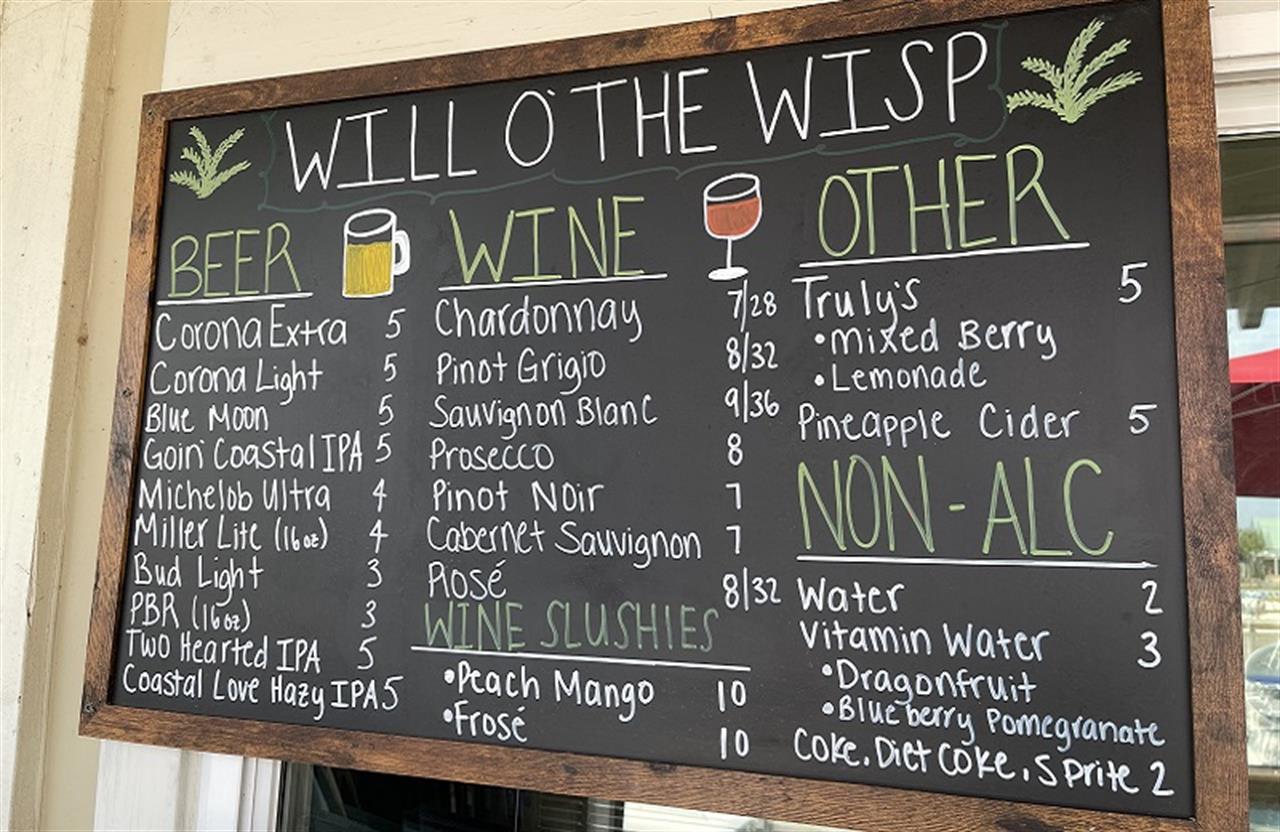 WILL O' THE WISP
BEER
Corona Extra 5
Corona Light 5
Blue Moon 5
Goin' Coastal IPA 5
Michelob Ultra 4
Miller Lite (16oz) 4
Bud Light 3
PBR (16oz) 3
Two Hearted IPA 5
Coastal Love Hazy IPA 5
WINE
Chardonnay 7/28
Pinot Grigio 8/32
Sauvignon Blanc 9/36
Prosecco 8
Pinot Noir 7
Cabernet Sauvignon 7
Rosé 8/32
WINE SLUSHIES
•Peach Mango 10
•Frosé 10
OTHER
Truly's 5
•Mixed Berry
•Lemonade
Pineapple Cider 5
NON-ALC
Water 2
Vitamin Water 3
•Dragonfruit
•Blueberry Pomegranate
Coke, Diet Coke, Sprite 2